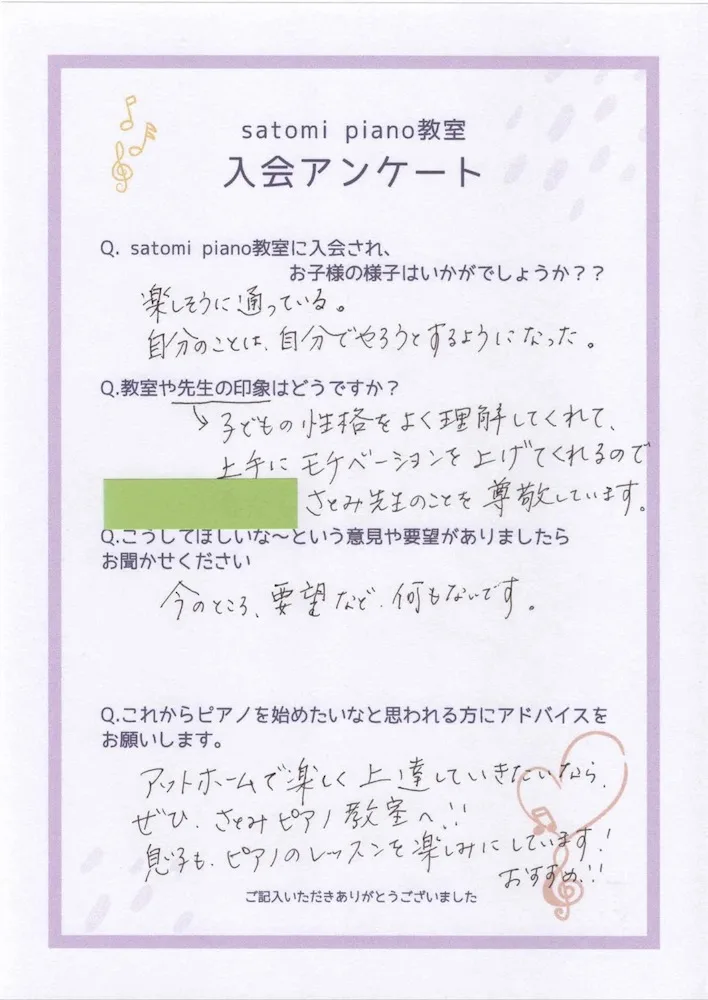 satomi piano教室
入会アンケート
Q. satomi piano教室に入会され、
お子様の様子はいかがでしょうか？？
楽しそうに通っている。
自分のことは、自分でやろうとするようになった。
Q.教室や先生の印象はどうですか？
↘子どもの性格をよく理解してくれて、
上手にモチベーションを上げてくれるので
さとみ先生のことを尊敬しています。
Q.こうしてほしいな〜という意見や要望がありましたら
お聞かせください
今のところ、要望など、何もないです。
Q.これからピアノを始めたいなと思われる方にアドバイスを
お願いします。
アットホームで楽しく上達していきたいなら、
ぜひ、さとみピアノ教室へ!!
息子も、ピアノのレッスンを楽しみにしています!
おすすめ!!
ご記入いただきありがとうございました